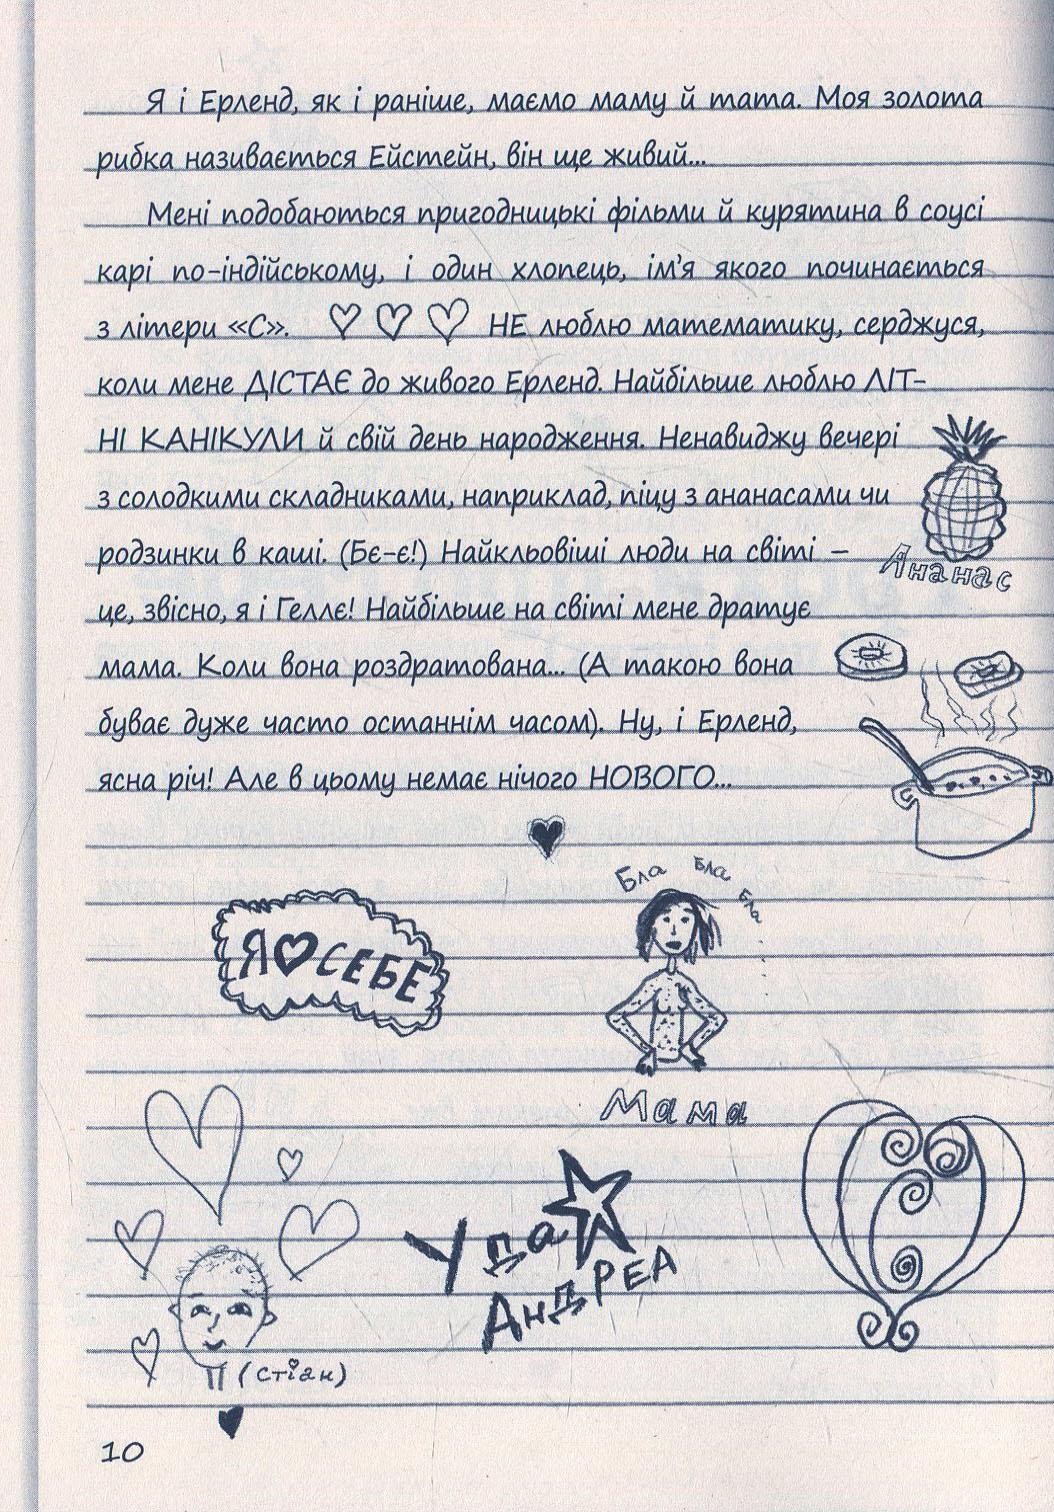 Я і Ерленд, як і раніше, маємо маму й тата. Моя золота
рибка називається Ейстейн, він ще живий...
Мені подобаються пригодницькі фільми й курятина в соусі
карі по-індійському, і один хлопець, ім'я якого починається
з літери «С». ♡ ♡ ♡ НЕ люблю математику, серджуся,
коли мене ДІСТАЄ до живого Ерленд. Найбільше люблю ЛІТ-
НІ КАНІКУЛИ й свій день народження. Ненавиджу вечері
з солодкими складниками, наприклад, піцу з ананасами чи
родзинки в каші. (Бє-є!) Найкльовіші люди на світі –
Ананас
це, звісно, я і Геллє! Найбільше на світі мене дратує
мама. Коли вона роздратована... (А такою вона
буває дуже часто останнім часом). Ну, і Ерленд,
ясна річ! Але в цьому немає нічого НОВОГО...
Бла Бла Бла
Я♥СЕБЕ
Мама
Уда
АнДРЕА
(Стіан)
10